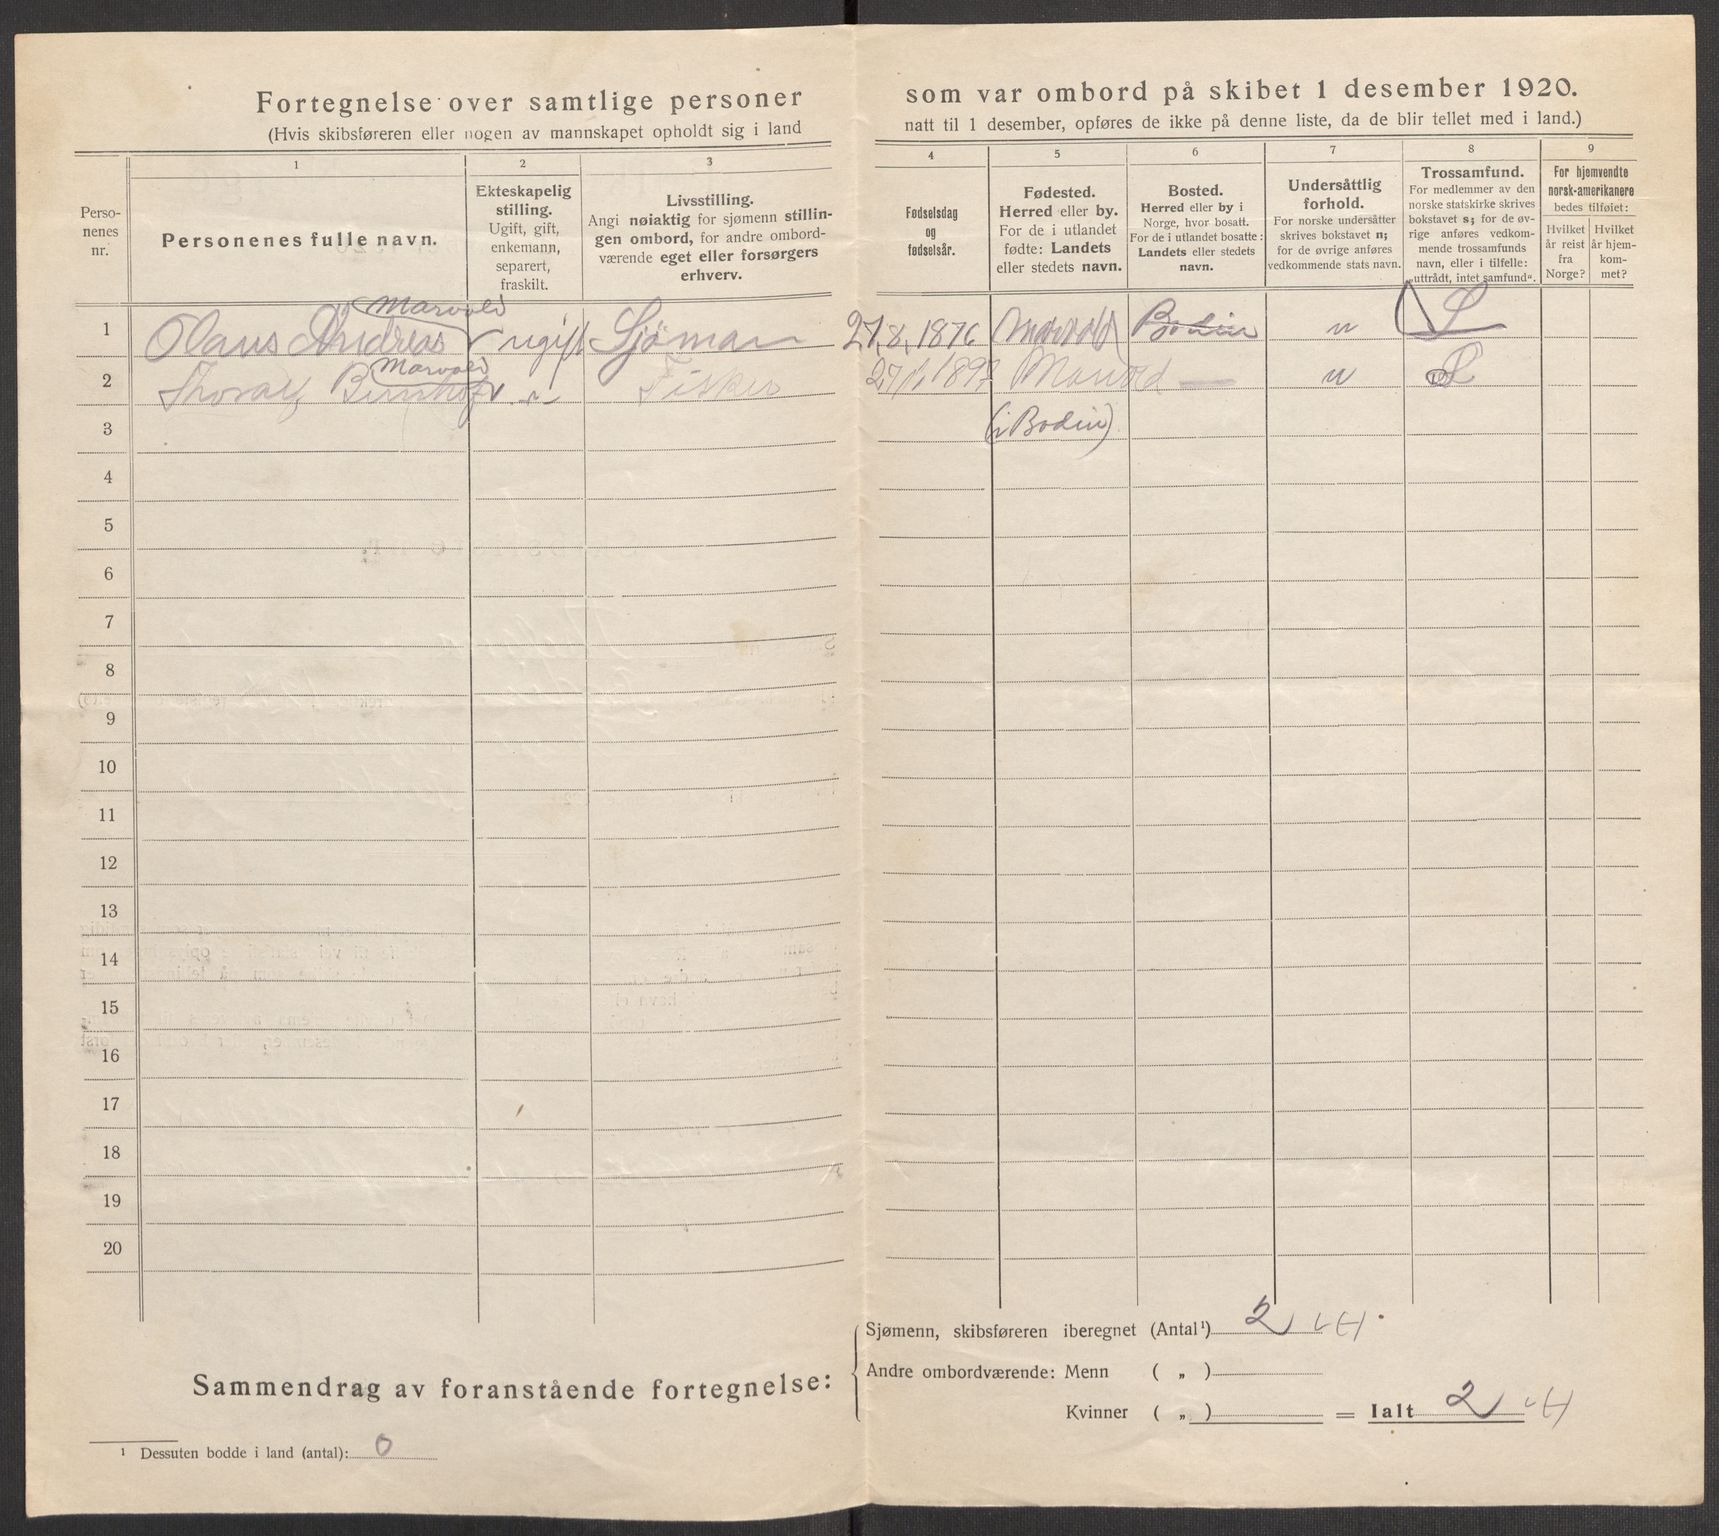 Fortegnelse over samtlige personer som var ombord på skibet 1 desember 1920.
(Hvis skibsføreren eller nogen av mannskapet opholdt sig i land natt til 1 desember, opføres de ikke på denne liste, da de blir tellet med i land.)
Perso-
nenes
nr.
1
Personenes fulle navn.
2
Ekteskapelig
stilling.
Ugift, gift,
enkemann,
separert,
fraskilt.
3
Livsstilling.
Angi nøiaktig for sjømenn stillin-
gen ombord, for andre ombord-
værende eget eller forsørgers
erhverv.
4
Fødselsdag
og
fødselsår.
5
Fødested.
Herred eller by.
For de i utlandet
fødte: Landets
eller stedets navn.
6
Bosted.
Herred eller by i
Norge, hvor bosatt.
For de i utlandet bosatte:
Landets eller stedets
navn.
7
Undersåttlig
forhold.
For norske undersåtter
skrives bokstavet n;
for de øvrige anføres
vedkommende stats navn.
8
Trossamfund.
For medlemmer av den
norske statskirke skrives
bokstavet s; for de øv-
rige anføres vedkom-
mende trossamfunds
navn, eller i tilfelle:
„uttrådt, intet samfund“.
9
For hjemvendte
norsk-amerikanere
bedes tilføiet:
Hvilket
år reist
fra
Norge?
Hvilket
år hjem-
kom-
met?
Marvold
1 Olaus Andreas ugift Sjöman 27.8.1876 Marvold Bodin n S
Marvold
2 Fisker 1897 n S
3 (i Bodin)
4
5
6
7
8
9
10
11
12
13
14
15
16
17
18
19
20
Sammendrag av foranstående fortegnelse:
Sjømenn, skibsføreren iberegnet (Antal¹) 2
Andre ombordværende: Menn ( „ )
Kvinner ( „ ) = Ialt 2
¹ Dessuten bodde i land (antal): 0